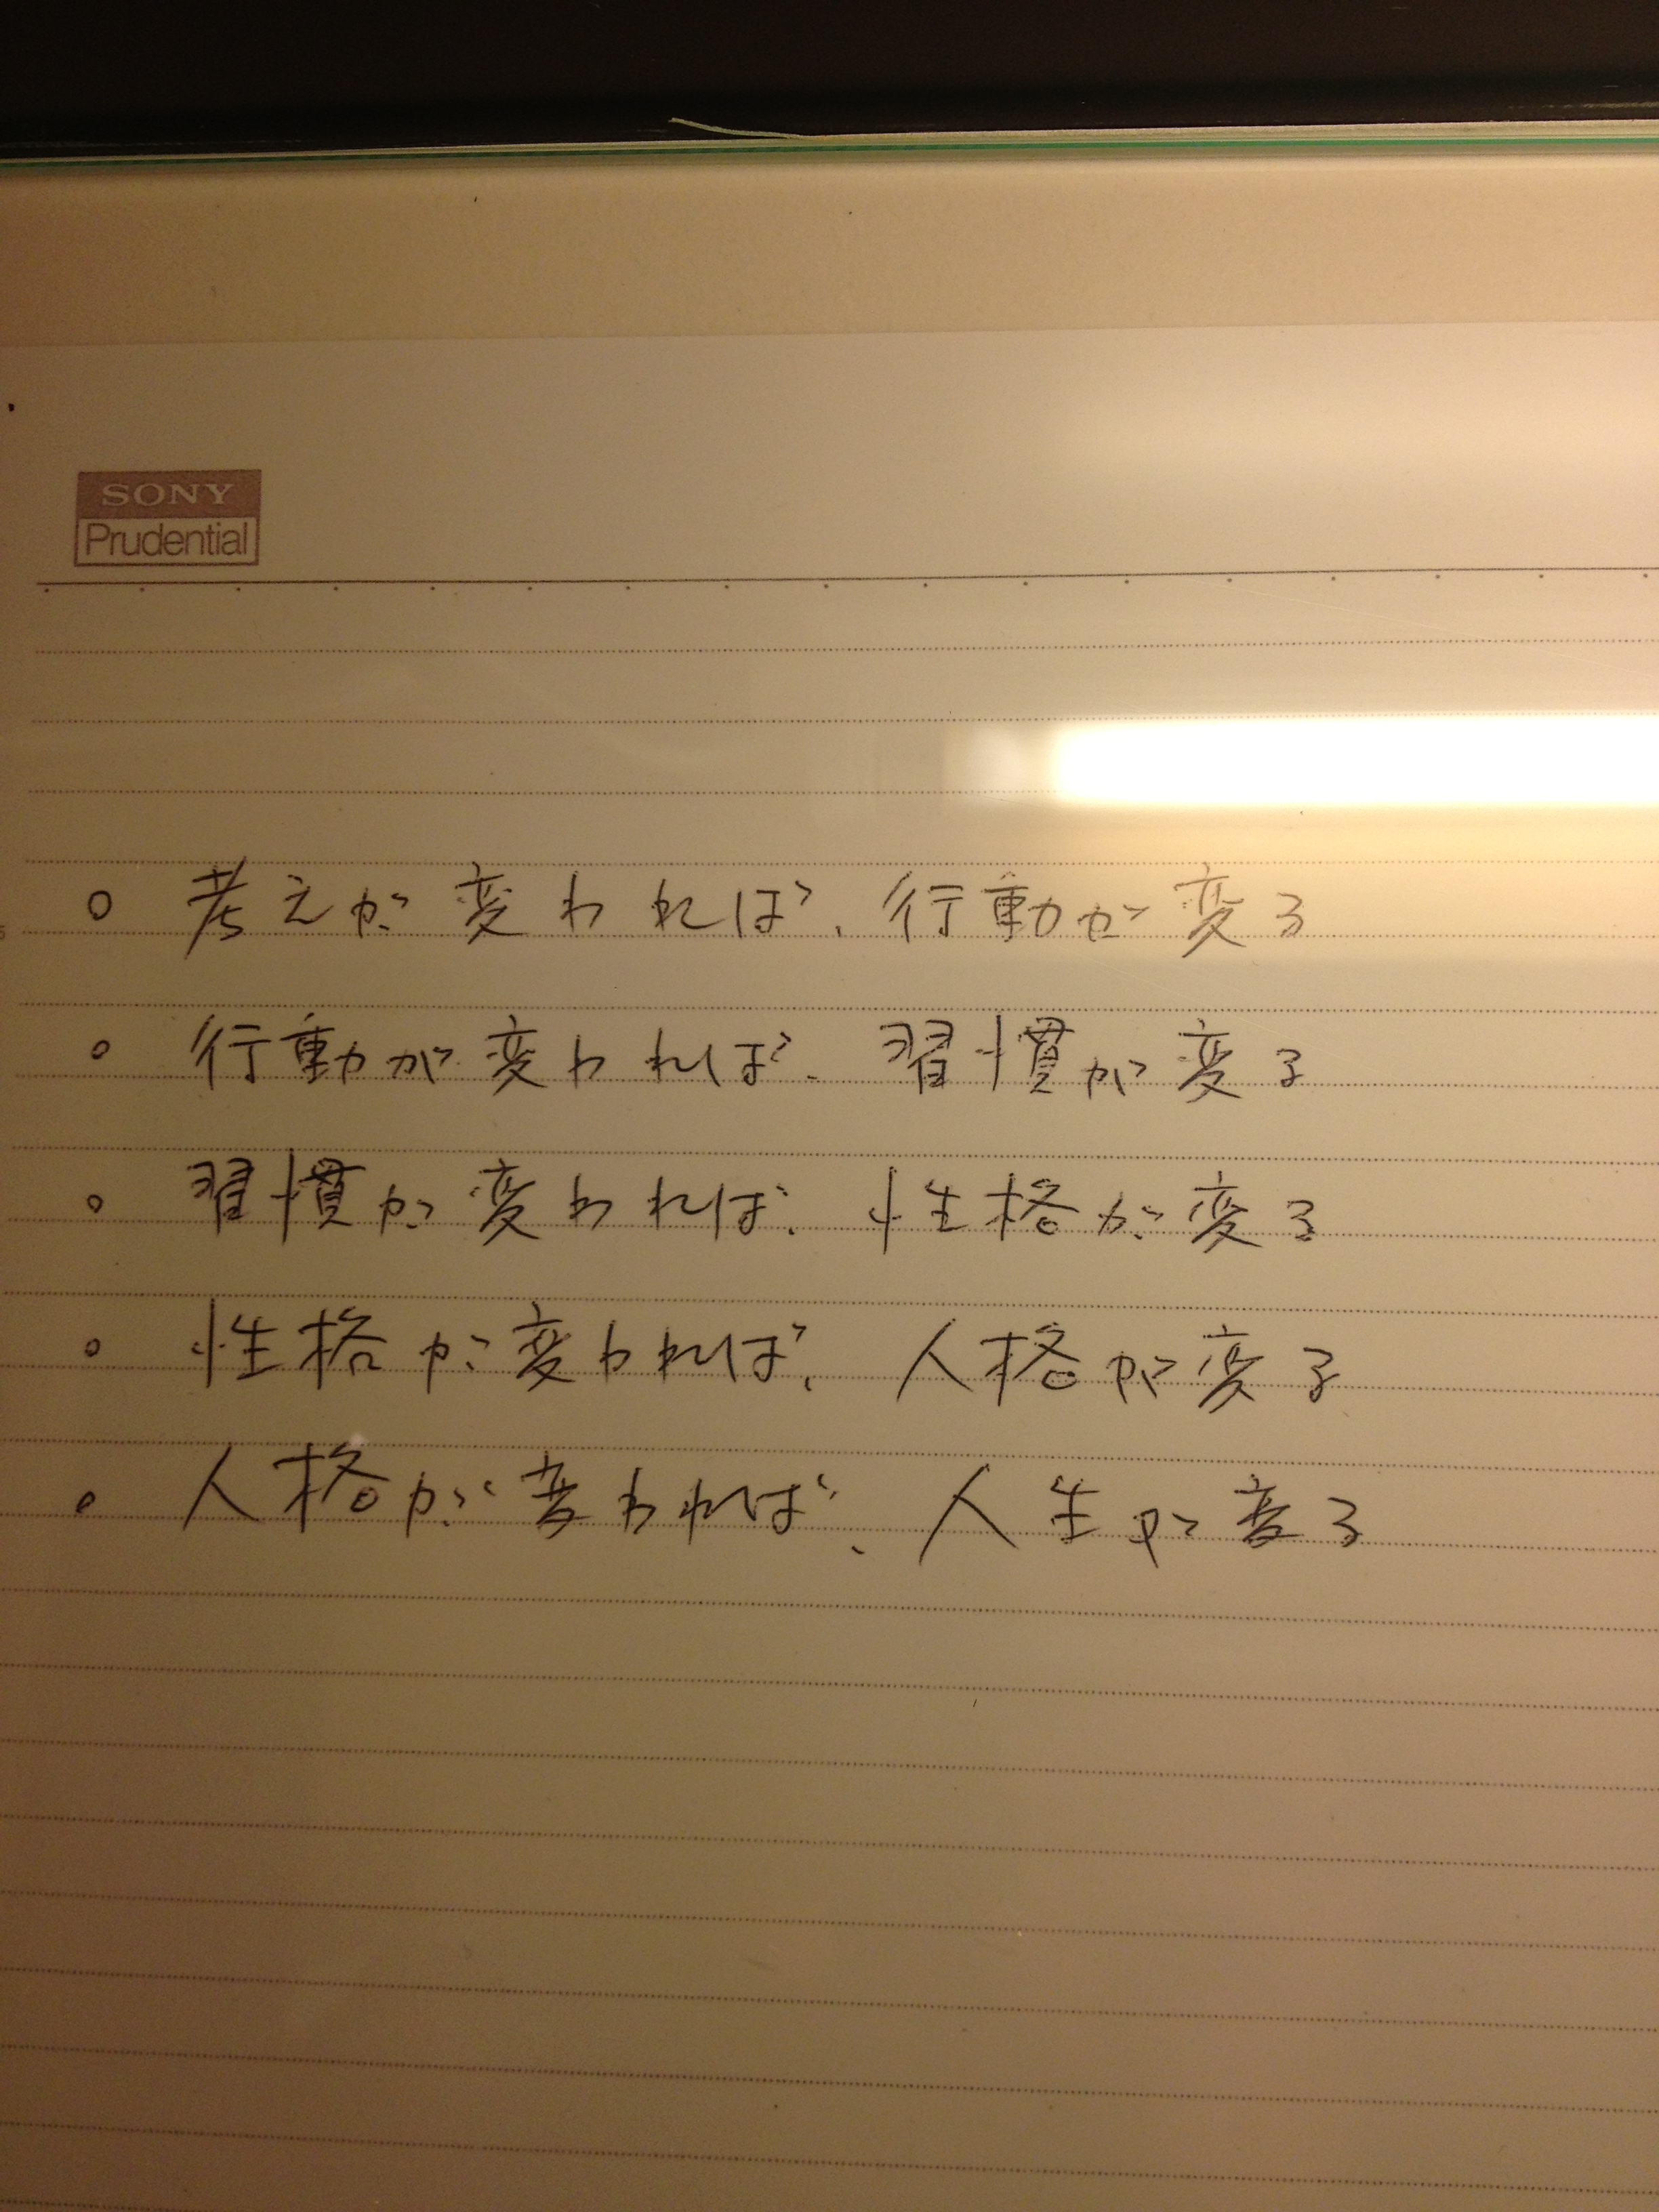 SONY
Prudential
○ 考えが変われば、行動が変る
○ 行動が変われば、習慣が変る
○ 習慣が変われば、性格が変る
○ 性格が変われば、人格が変る
○ 人格が変われば、人生が変る